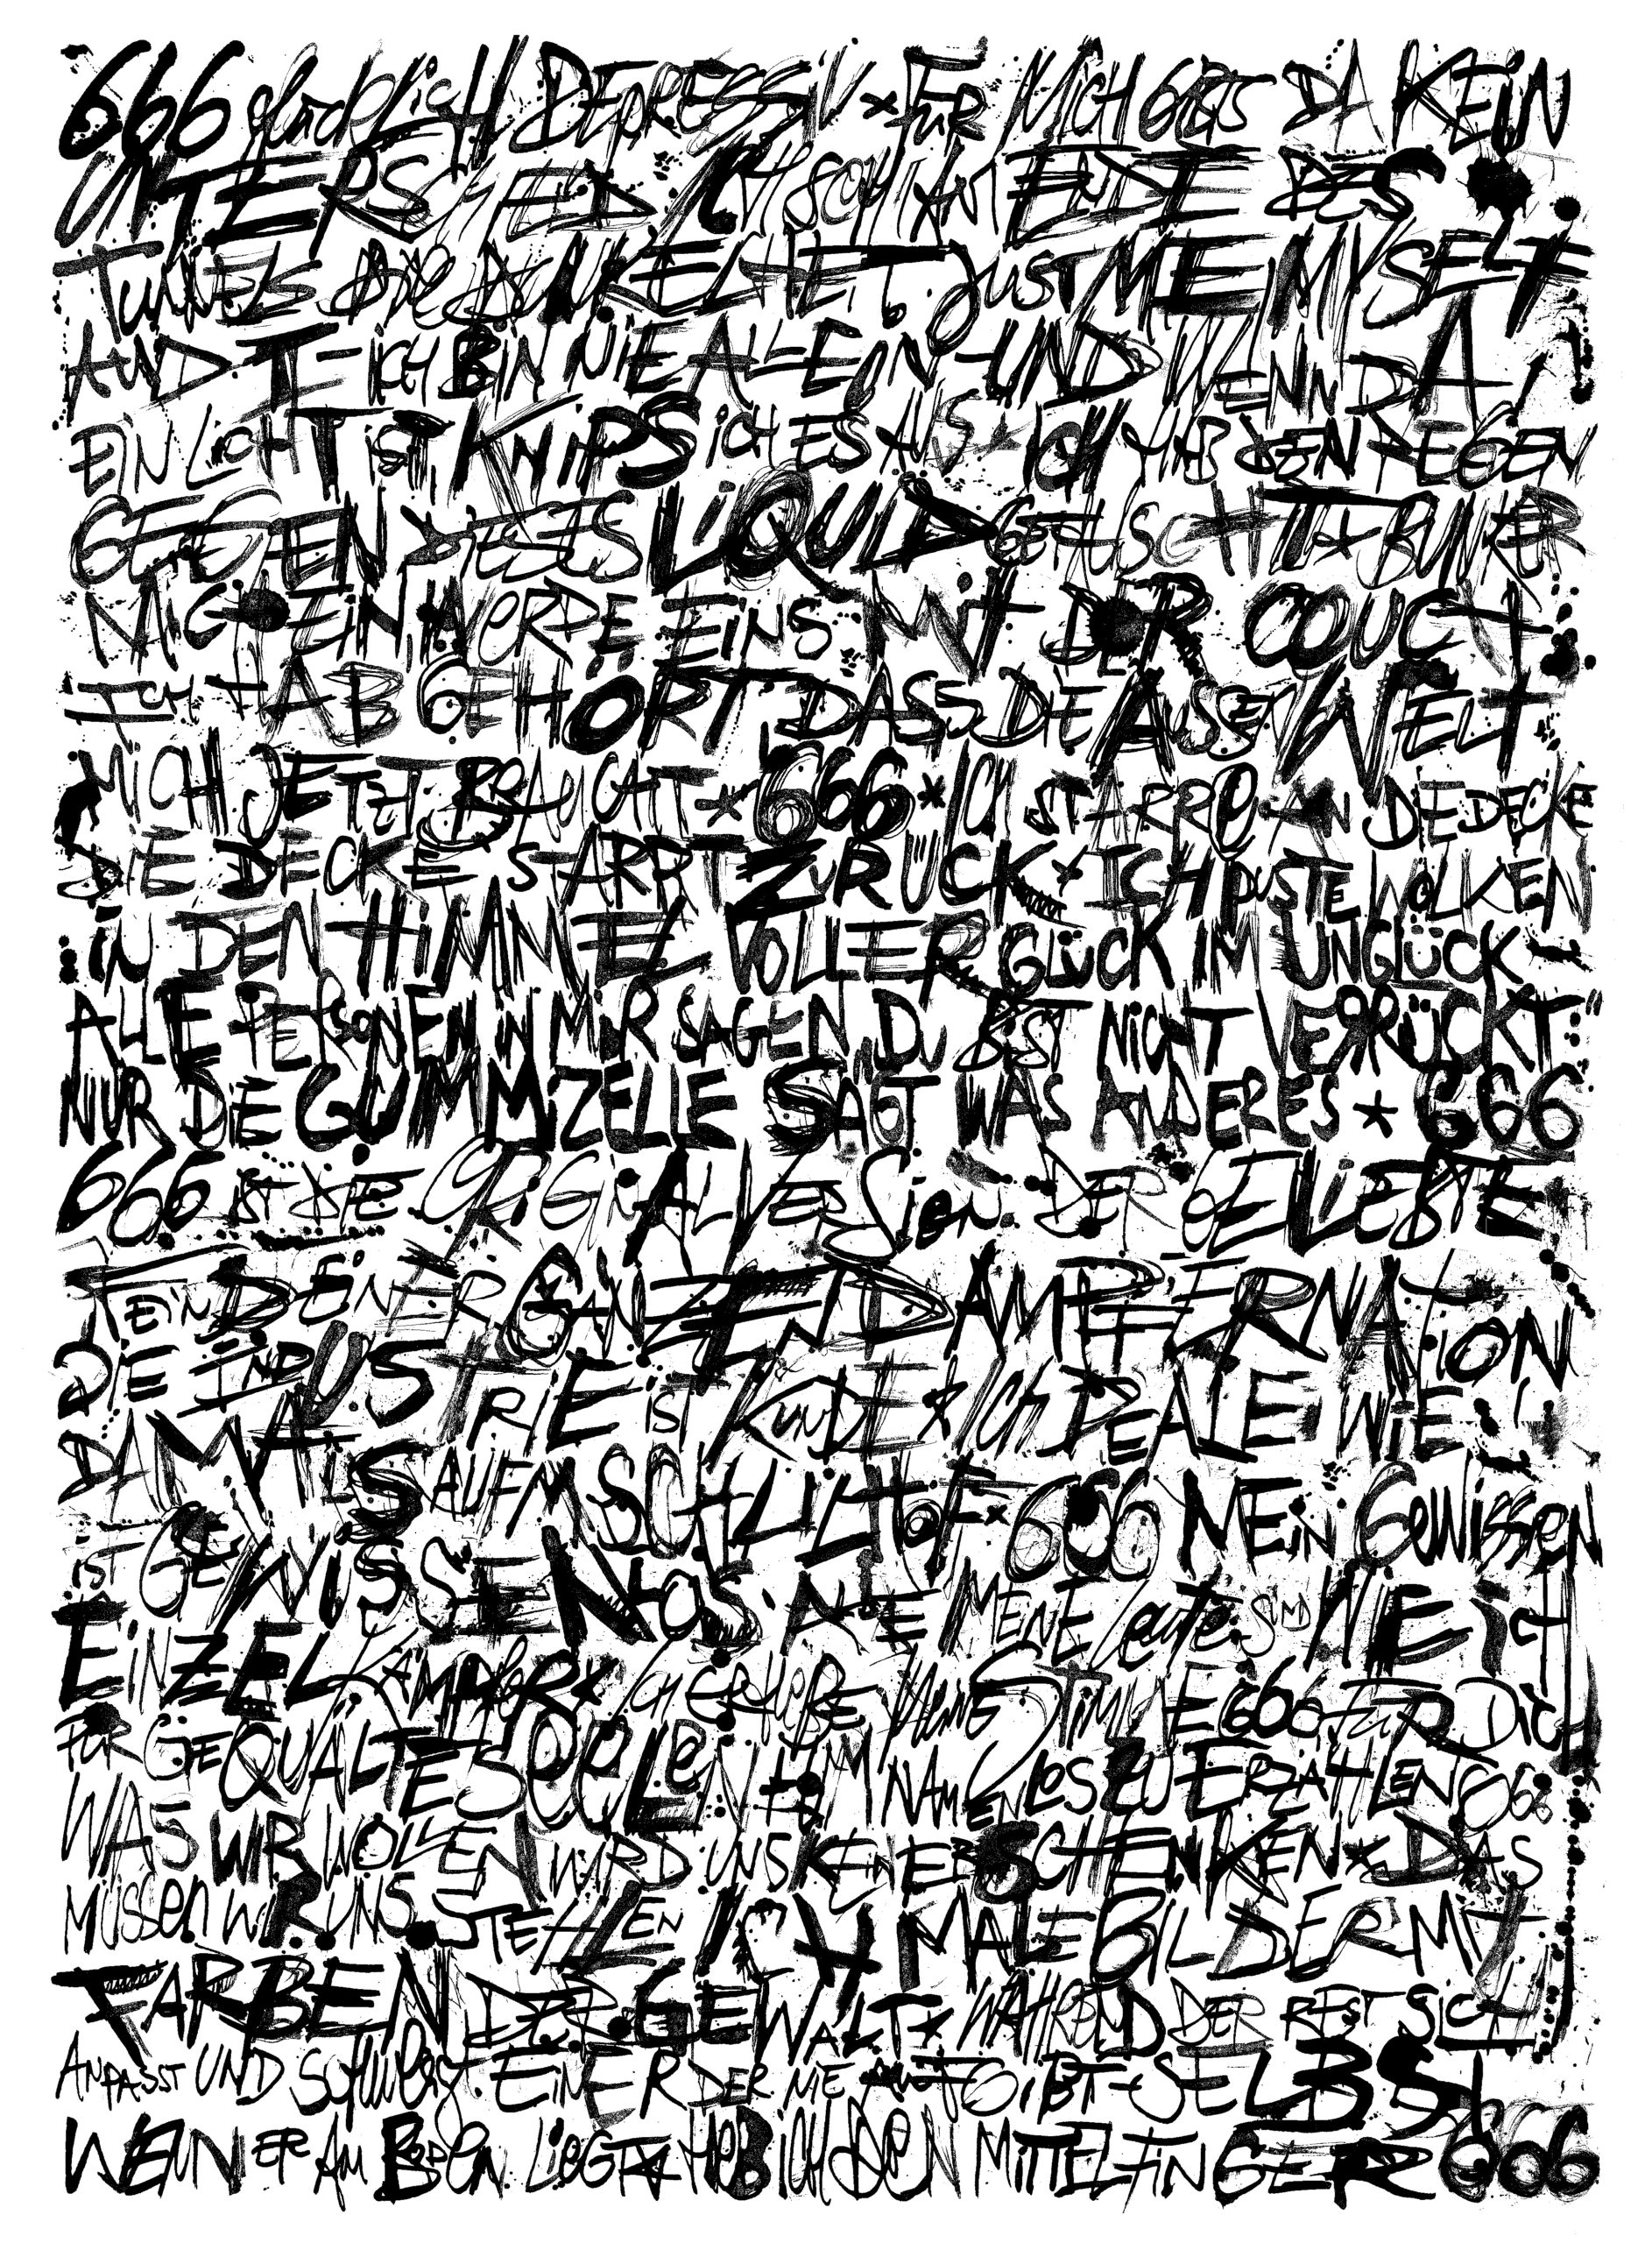 666 glücklich DEPRESSiV * FÜR MICH GIBTS DA KEiN
UNTERSCHIED ICH SCHI AM ENDE DES
TUNNELS DIE DUNKELHEIT. JUST ME MYSELF
AND I - ICH BiN NiE ALLEiN - UND WENN DA
EiN LiCHT iST, KNiPS iCH ES AUS * ICH HAB DEN REGEN
GEGEN DIESES LiQUiD GETAUSCHT * BUNKER
MICH EiN, WERDE EiNS MiT DER COUCH
ICH HAB GEHÖRT DASS DIE AUSSENWELT
MiCH JETZT BRAUCHT * 666 * ICH STARRe AN DIE DECKE
DiE DECKE STARRT ZURÜCK * ICH PUSTE WOLKEN
iN DEN HiMMEL VOLLER GLÜCK IM UNGLÜCK -
ALLE PERSONEN iN MiR SAGEN „DU BiST NiCHT VERRÜCKT"
NUR DiE GUMMiZELLE SAGT WAS ANDERES * 666
666 iST DiE ORiGiNALVERSiON. DER GELiEBTE
FEiND DEiNER GANZEN DAMPFERNATiON
DiE INDUSTRiE iST KUNDE * ICH DEALE WiE
DAMALS AUFM SCHULHOF * 666 MEiN GeWissen
iST GEWiSSENLOS. ALLE MEiNE Leute SiND WiE iCH
EiNZELKÄMPfeR * ICH ERHEBE MeiNE STiMME 666 FÜR DiCH
FÜR GEQUÄLTE SEELeN * UM NAMENLOS ZU ERZÄHLEN 666
WAS WIR WOLLEN WiRD UNS KEiNER SCHENKEN * DAS
MÜSSEN WiR UNS STEHLEN ICH MALE BiLDER MiT
FARBEN DER GEWALT * WÄHREND DER REST SiCH
ANPASST UND SCHWEiGT. EiNER DER NiE AUFGiBT - SELBST
WENN ER AM BODEN LieGT * HeB iCH DeN MiTTELFiNGER 666